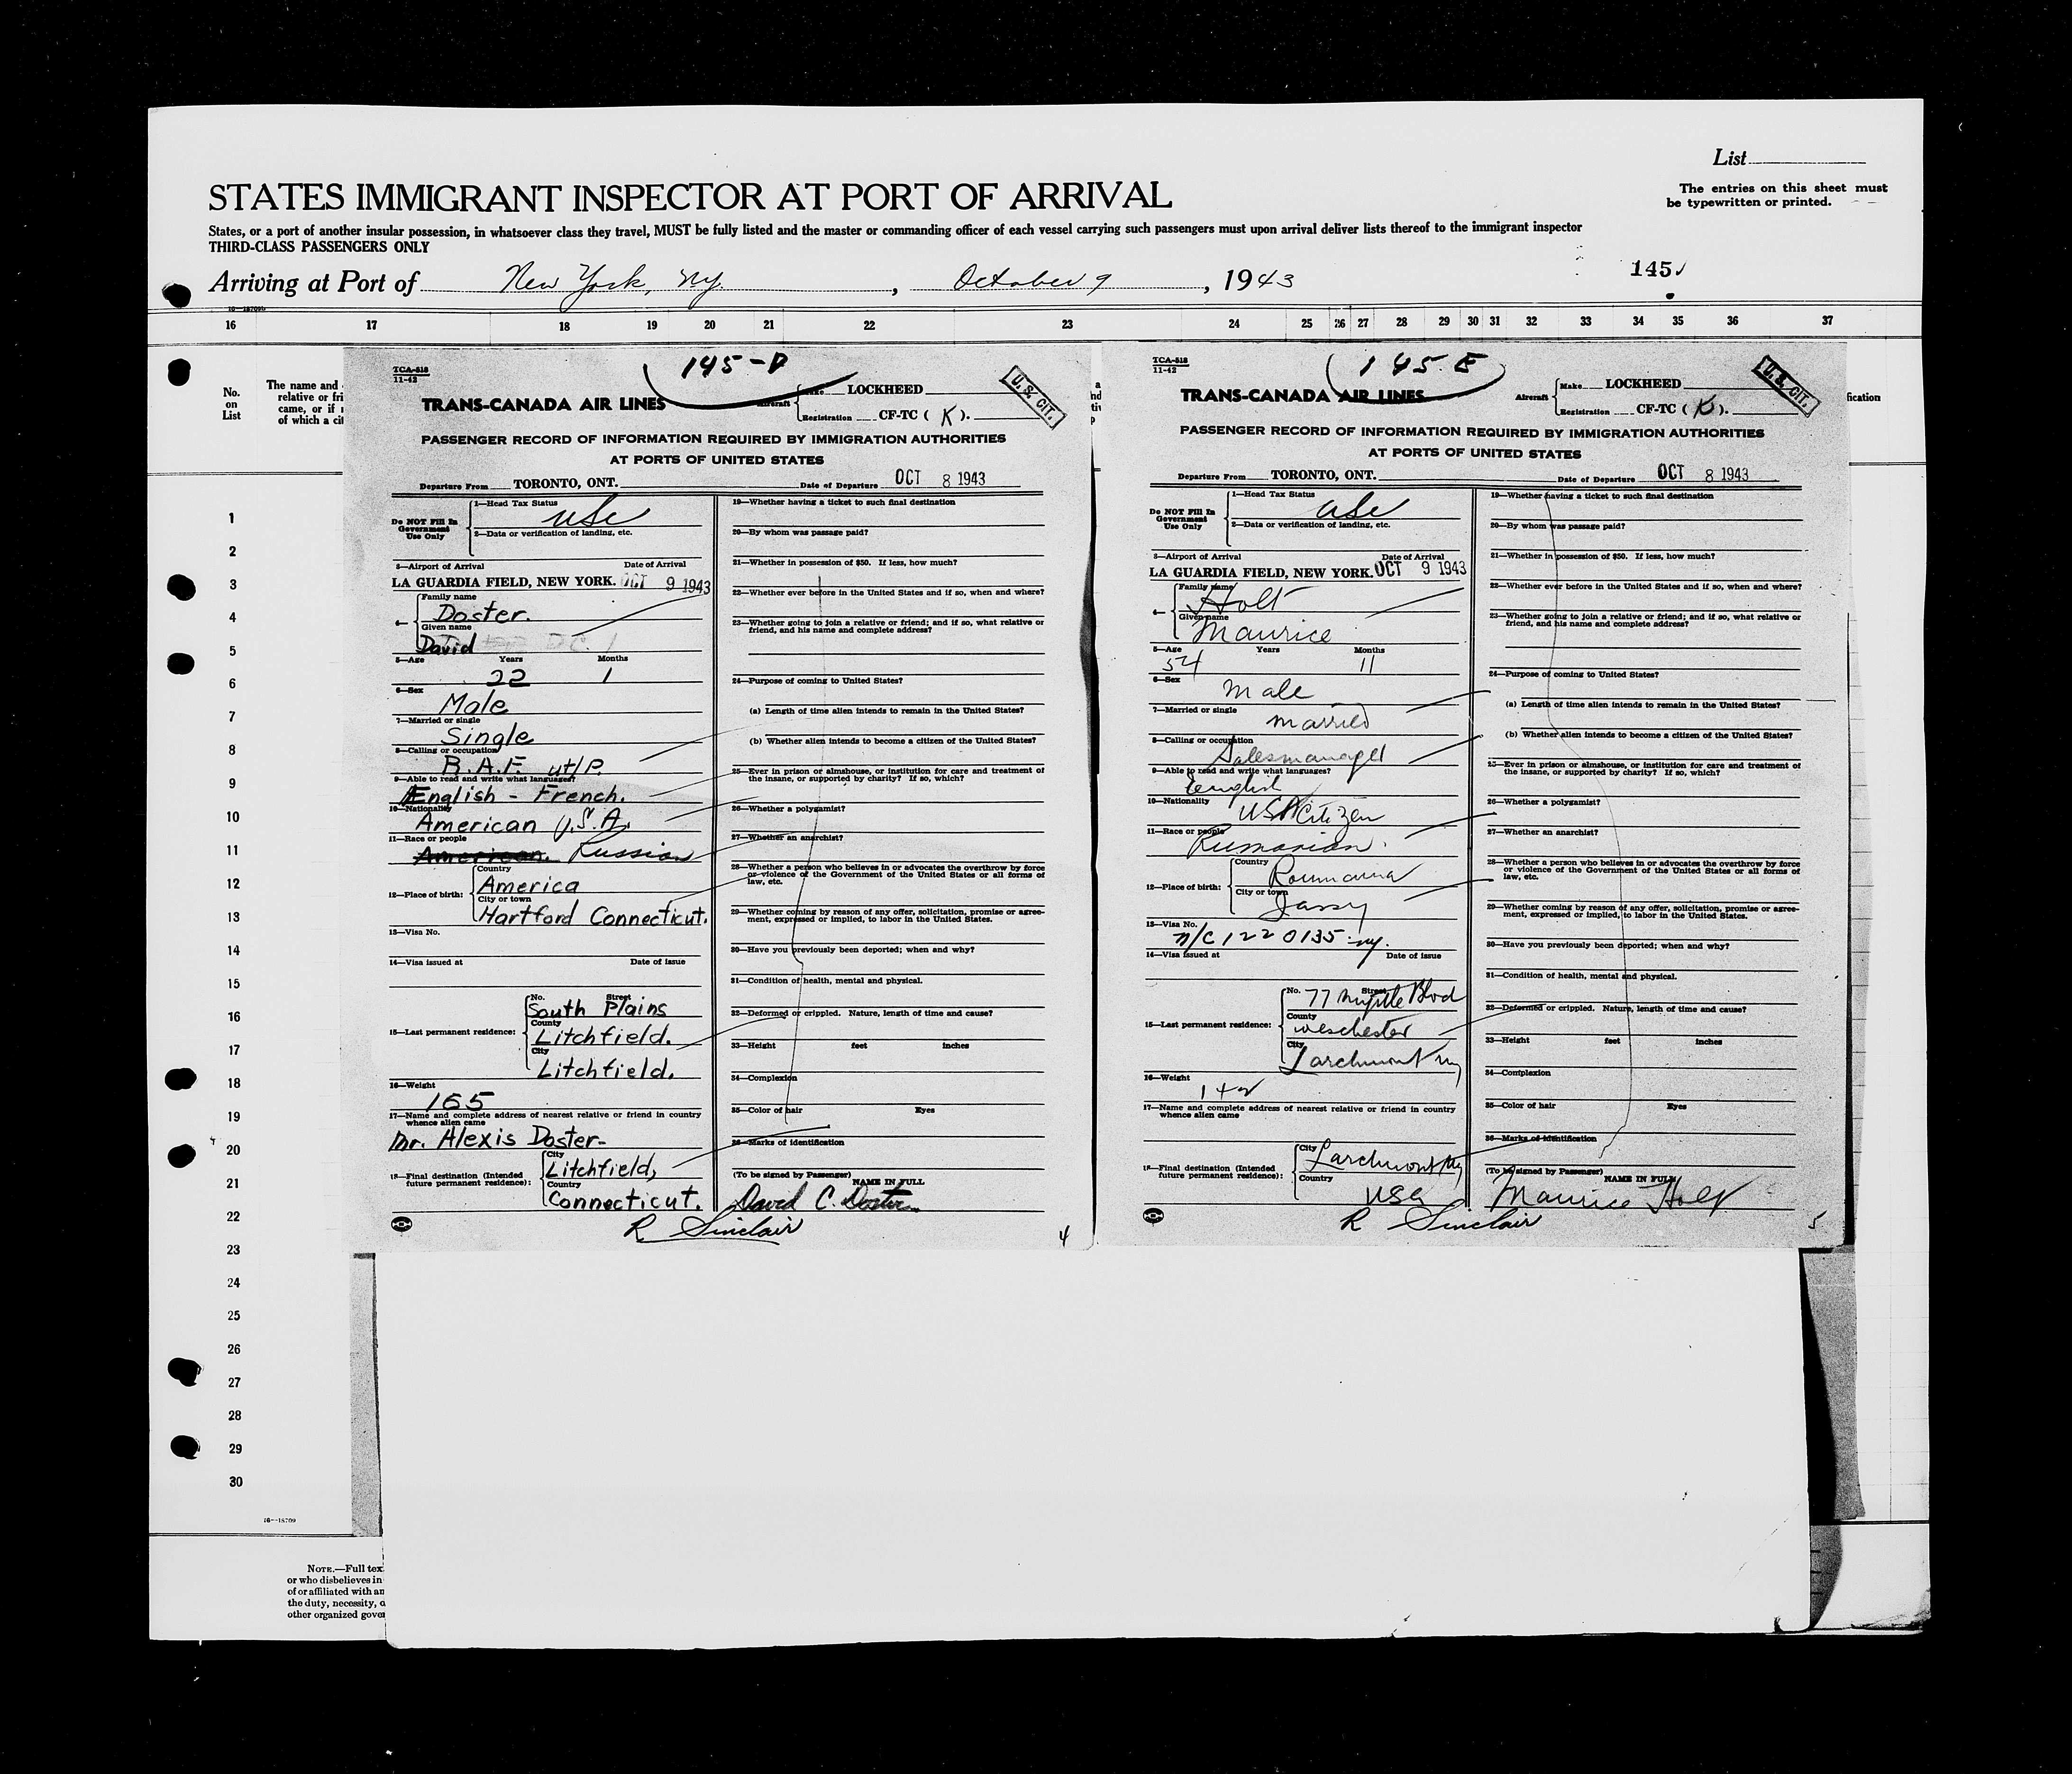 List
The entries on this sheet must
be typewritten or printed.
STATES IMMIGRANT INSPECTOR AT PORT OF ARRIVAL
States, or a port of another insular possession, in whatsoever class they travel, MUST be fully listed and the master or commanding officer of each vessel carrying such passengers must upon arrival deliver lists thereof to the immigrant inspector
THIRD-CLASS PASSENGERS ONLY
Arriving at Port of New York, NY. , October 9 , 1943
145
16 17 18 19 20 21 22 23 24 25 26 27 28 29 30 31 32 33 34 35 36 37
No.
on
List
The name and
relative or fri
came, or if
of which a cit
1
2
3
4
5
6
7
8
9
10
11
12
13
14
15
16
17
18
19
20
21
22
23
24
25
26
27
28
29
30
16—18709
NOTE.—Full tex
or who disbelieves in
of or affiliated with an
the duty, necessity, o
other organized gover
TCA-518
11-42
145-D
U. S. CIT.
TRANS-CANADA AIR LINES
Aircraft
Make LOCKHEED
Registration CF-TC ( K ).
PASSENGER RECORD OF INFORMATION REQUIRED BY IMMIGRATION AUTHORITIES
AT PORTS OF UNITED STATES
Departure From TORONTO, ONT. Date of Departure OCT 8 1943
Do NOT Fill In
Government
Use Only
1—Head Tax Status
USC
2—Data or verification of landing, etc.
3—Airport of Arrival Date of Arrival
LA GUARDIA FIELD, NEW YORK. OCT 9 1943
4—
Family name
Doster.
Given name
David
5—Age Years Months
22 1
6—Sex
Male
7—Married or single
Single
8—Calling or occupation
R.A.F. ut/P.
9—Able to read and write what languages?
English - French.
10—Nationality
American U.S.A.
11—Race or people
American. Russian
12—Place of birth:
Country
America
City or town
Hartford Connecticut.
13—Visa No.
14—Visa issued at Date of issue
15—Last permanent residence:
No. Street
South Plains
County
Litchfield.
City
Litchfield.
16—Weight
165
17—Name and complete address of nearest relative or friend in country
whence alien came
Mr. Alexis Doster-
18—Final destination (Intended
future permanent residence):
City
Litchfield,
Country
Connecticut.
19—Whether having a ticket to such final destination
20—By whom was passage paid?
21—Whether in possession of $50. If less, how much?
22—Whether ever before in the United States and if so, when and where?
23—Whether going to join a relative or friend; and if so, what relative or
friend, and his name and complete address?
24—Purpose of coming to United States?
(a) Length of time alien intends to remain in the United States?
(b) Whether alien intends to become a citizen of the United States?
25—Ever in prison or almshouse, or institution for care and treatment of
the insane, or supported by charity? If so, which?
26—Whether a polygamist?
27—Whether an anarchist?
28—Whether a person who believes in or advocates the overthrow by force
or violence of the Government of the United States or all forms of
law, etc.
29—Whether coming by reason of any offer, solicitation, promise or agree-
ment, expressed or implied, to labor in the United States.
30—Have you previously been deported; when and why?
31—Condition of health, mental and physical.
32—Deformed or crippled. Nature, length of time and cause?
33—Height feet inches
34—Complexion
35—Color of hair Eyes
36—Marks of identification
(To be signed by Passenger) NAME IN FULL
David C. Doster
R Sinclair
4
TCA-518
11-42
145 E
U. S. CIT.
TRANS-CANADA AIR LINES
Aircraft
Make LOCKHEED
Registration CF-TC ( K ).
PASSENGER RECORD OF INFORMATION REQUIRED BY IMMIGRATION AUTHORITIES
AT PORTS OF UNITED STATES
Departure From TORONTO, ONT. Date of Departure OCT 8 1943
Do NOT Fill In
Government
Use Only
1—Head Tax Status
USC
2—Data or verification of landing, etc.
3—Airport of Arrival Date of Arrival
LA GUARDIA FIELD, NEW YORK. OCT 9 1943
4—
Family name
Holt
Given name
Maurice
5—Age Years Months
54 11
6—Sex
Male
7—Married or single
married
8—Calling or occupation
Salesmanager
9—Able to read and write what languages?
English
10—Nationality
USA Citizen
11—Race or people
Rumanian.
12—Place of birth:
Country
Roumania
City or town
Jassy
13—Visa No.
n/c 1220135 ny.
14—Visa issued at Date of issue
15—Last permanent residence:
No. Street
77 Myrtle Blvd
County
Weschester
City
Larchmont NY
16—Weight
142
17—Name and complete address of nearest relative or friend in country
whence alien came
18—Final destination (Intended
future permanent residence):
City
Larchmont NY
Country
USA
19—Whether having a ticket to such final destination
20—By whom was passage paid?
21—Whether in possession of $50. If less, how much?
22—Whether ever before in the United States and if so, when and where?
23—Whether going to join a relative or friend; and if so, what relative or
friend, and his name and complete address?
24—Purpose of coming to United States?
(a) Length of time alien intends to remain in the United States?
(b) Whether alien intends to become a citizen of the United States?
25—Ever in prison or almshouse, or institution for care and treatment of
the insane, or supported by charity? If so, which?
26—Whether a polygamist?
27—Whether an anarchist?
28—Whether a person who believes in or advocates the overthrow by force
or violence of the Government of the United States or all forms of
law, etc.
29—Whether coming by reason of any offer, solicitation, promise or agree-
ment, expressed or implied, to labor in the United States.
30—Have you previously been deported; when and why?
31—Condition of health, mental and physical.
32—Deformed or crippled. Nature, length of time and cause?
33—Height feet inches
34—Complexion
35—Color of hair Eyes
36—Marks of identification
(To be signed by Passenger) NAME IN FULL
Maurice Holt
R Sinclair
5
fication